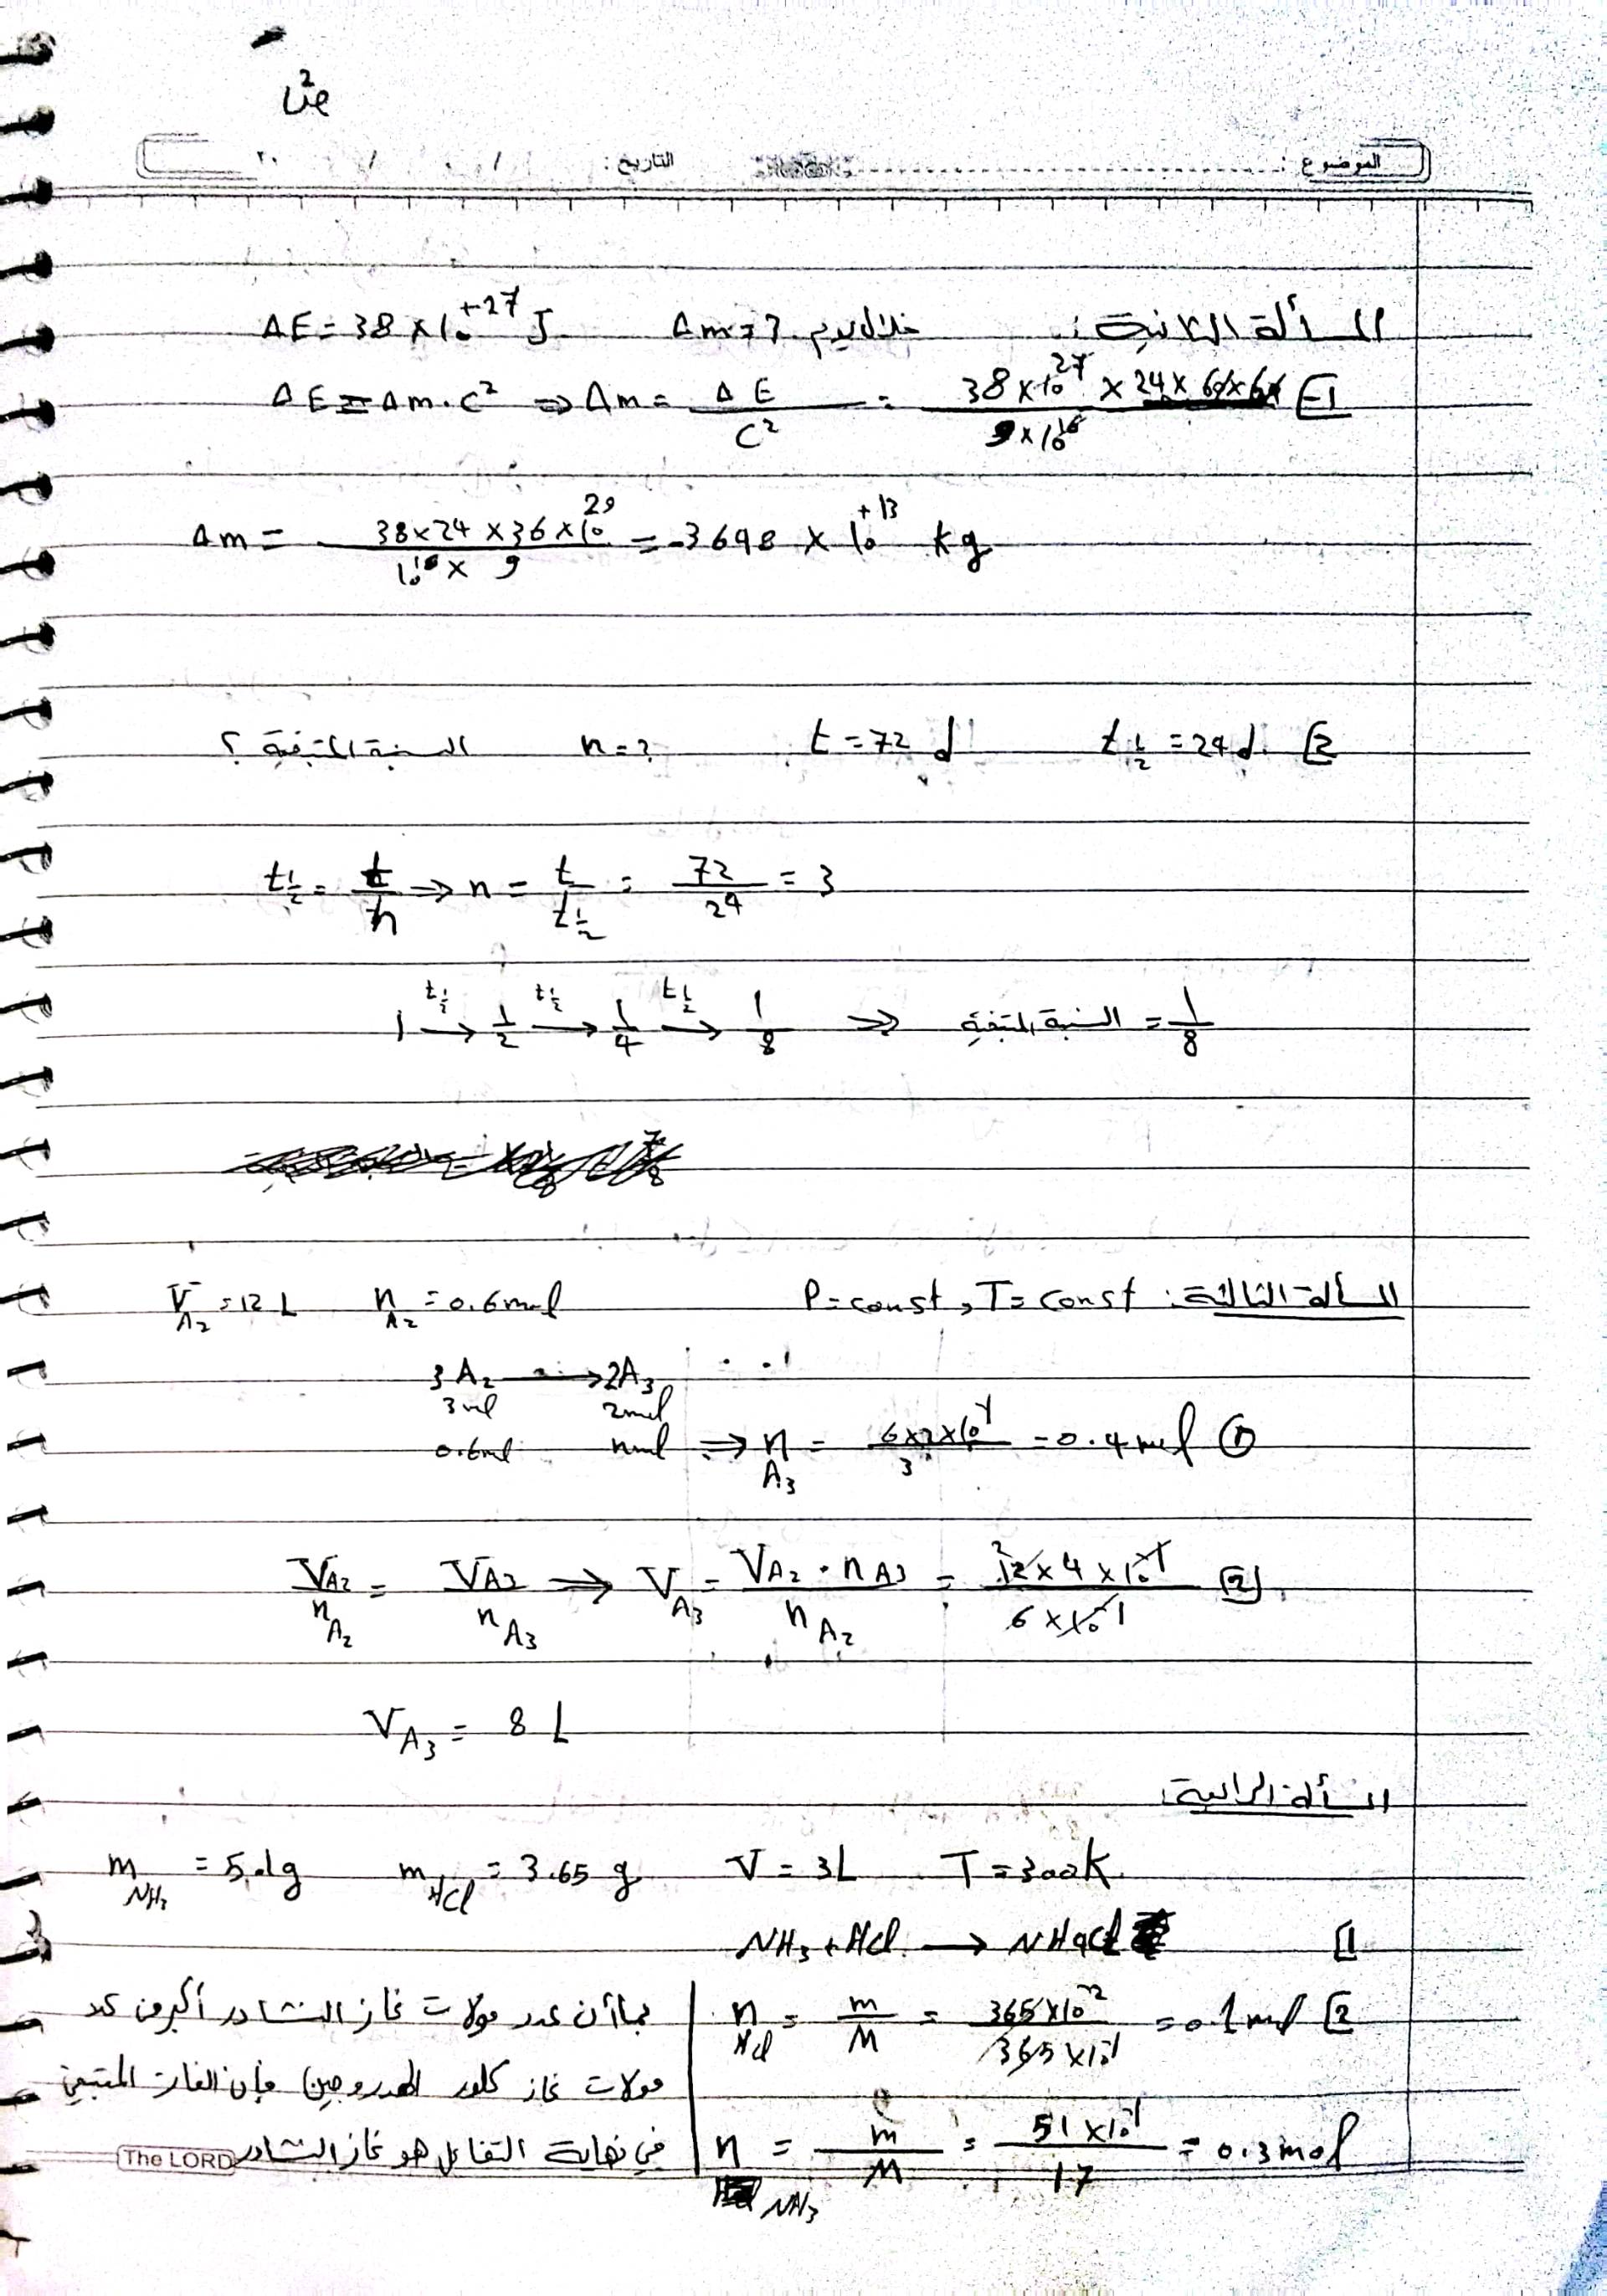 الموضوع : التاريخ : / / ٢٠
المسألة الثانية : خلال يوم Δm=? ΔE = 38 × 10^+27 J
1- ΔE = Δm.c² ⇒ Δm = ΔE / C² = 38 × 10^27 × 24 × 60 × 60 / 9 × 10^16
Δm = 38 × 24 × 36 × 10^29 / 10^16 × 9 = -3698 × 10^+13 kg
2 t½ = 24 d. t = 72 d n = ? النسبة المتبقية ؟
t½ = t / n ⇒ n = t / t½ = 72 / 24 = 3
1 →(t½) 1/2 →(t½) 1/4 →(t½) 1/8 ⇒ النسبة المتبقية = 1/8
المسألة الثالثة : P = const , T = const n A₂ = 0.6 mol V A₂ = 12 L
3A₂ → 2A₃
3 mol 2 mol
0.6 mol n mol ⇒ n A₃ = 6×2×10^-1 / 3 = 0.4 mol 1
2 V A₂ / n A₂ = V A₃ / n A₃ ⇒ V A₃ = V A₂ . n A₃ / n A₂ = 12 × 4 × 10^-1 / 6 × 10^-1
V A₃ = 8 L
المسألة الرابعة :
m NH₃ = 5.1 g m HCl = 3.65 g V = 3 L T = 300 K
1 NH₃ + HCl → NH4Cl
2 n HCl = m / M = 365 × 10^-2 / 365 × 10^-1 = 0.1 mol
n NH₃ = m / M = 51 × 10^-1 / 17 = 0.3 mol
بما أن عدد مولات غاز النشادر أكبر من عدد
مولات غاز كلور الهدروجين فإن الغاز المتبقي
في نهاية التفاعل هو غاز النشادر
The LORD